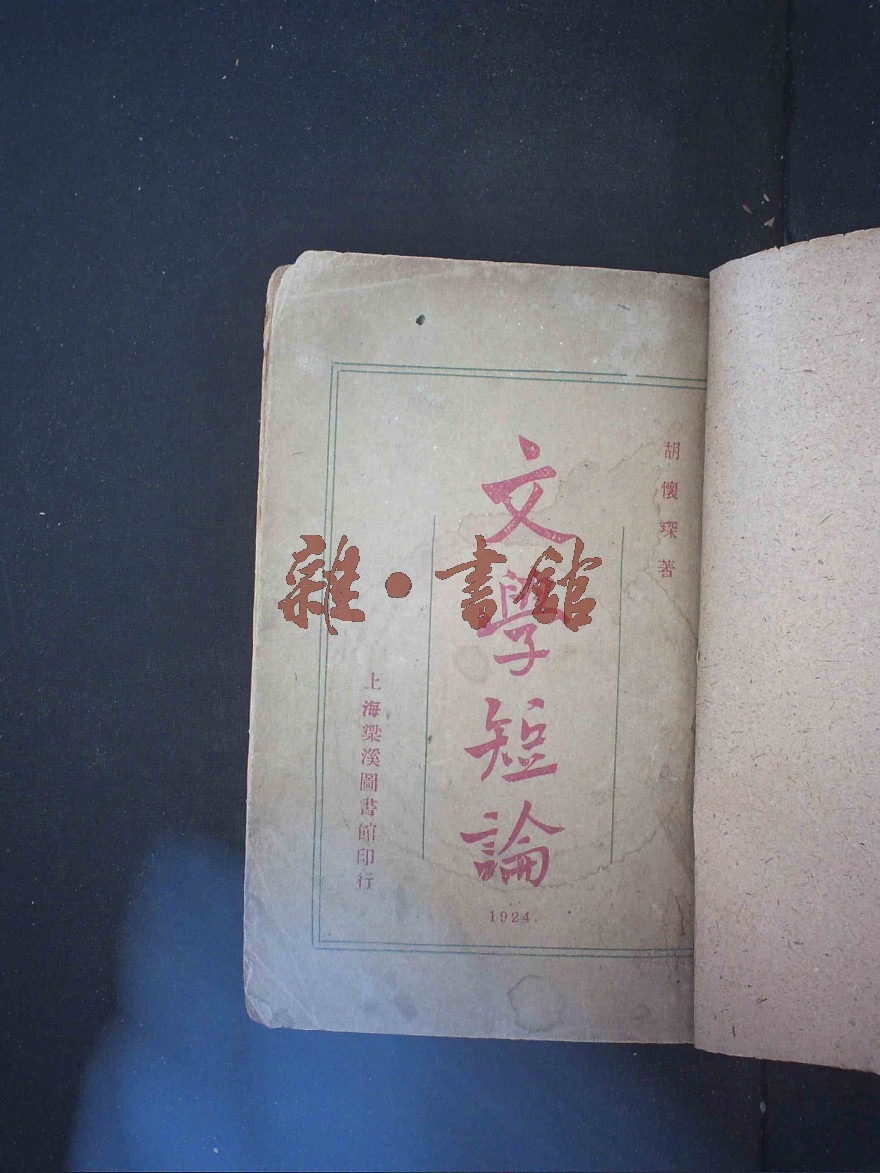 胡懷琛著
文學短論
1924.
上海梁溪圖書館印行
雜·書館